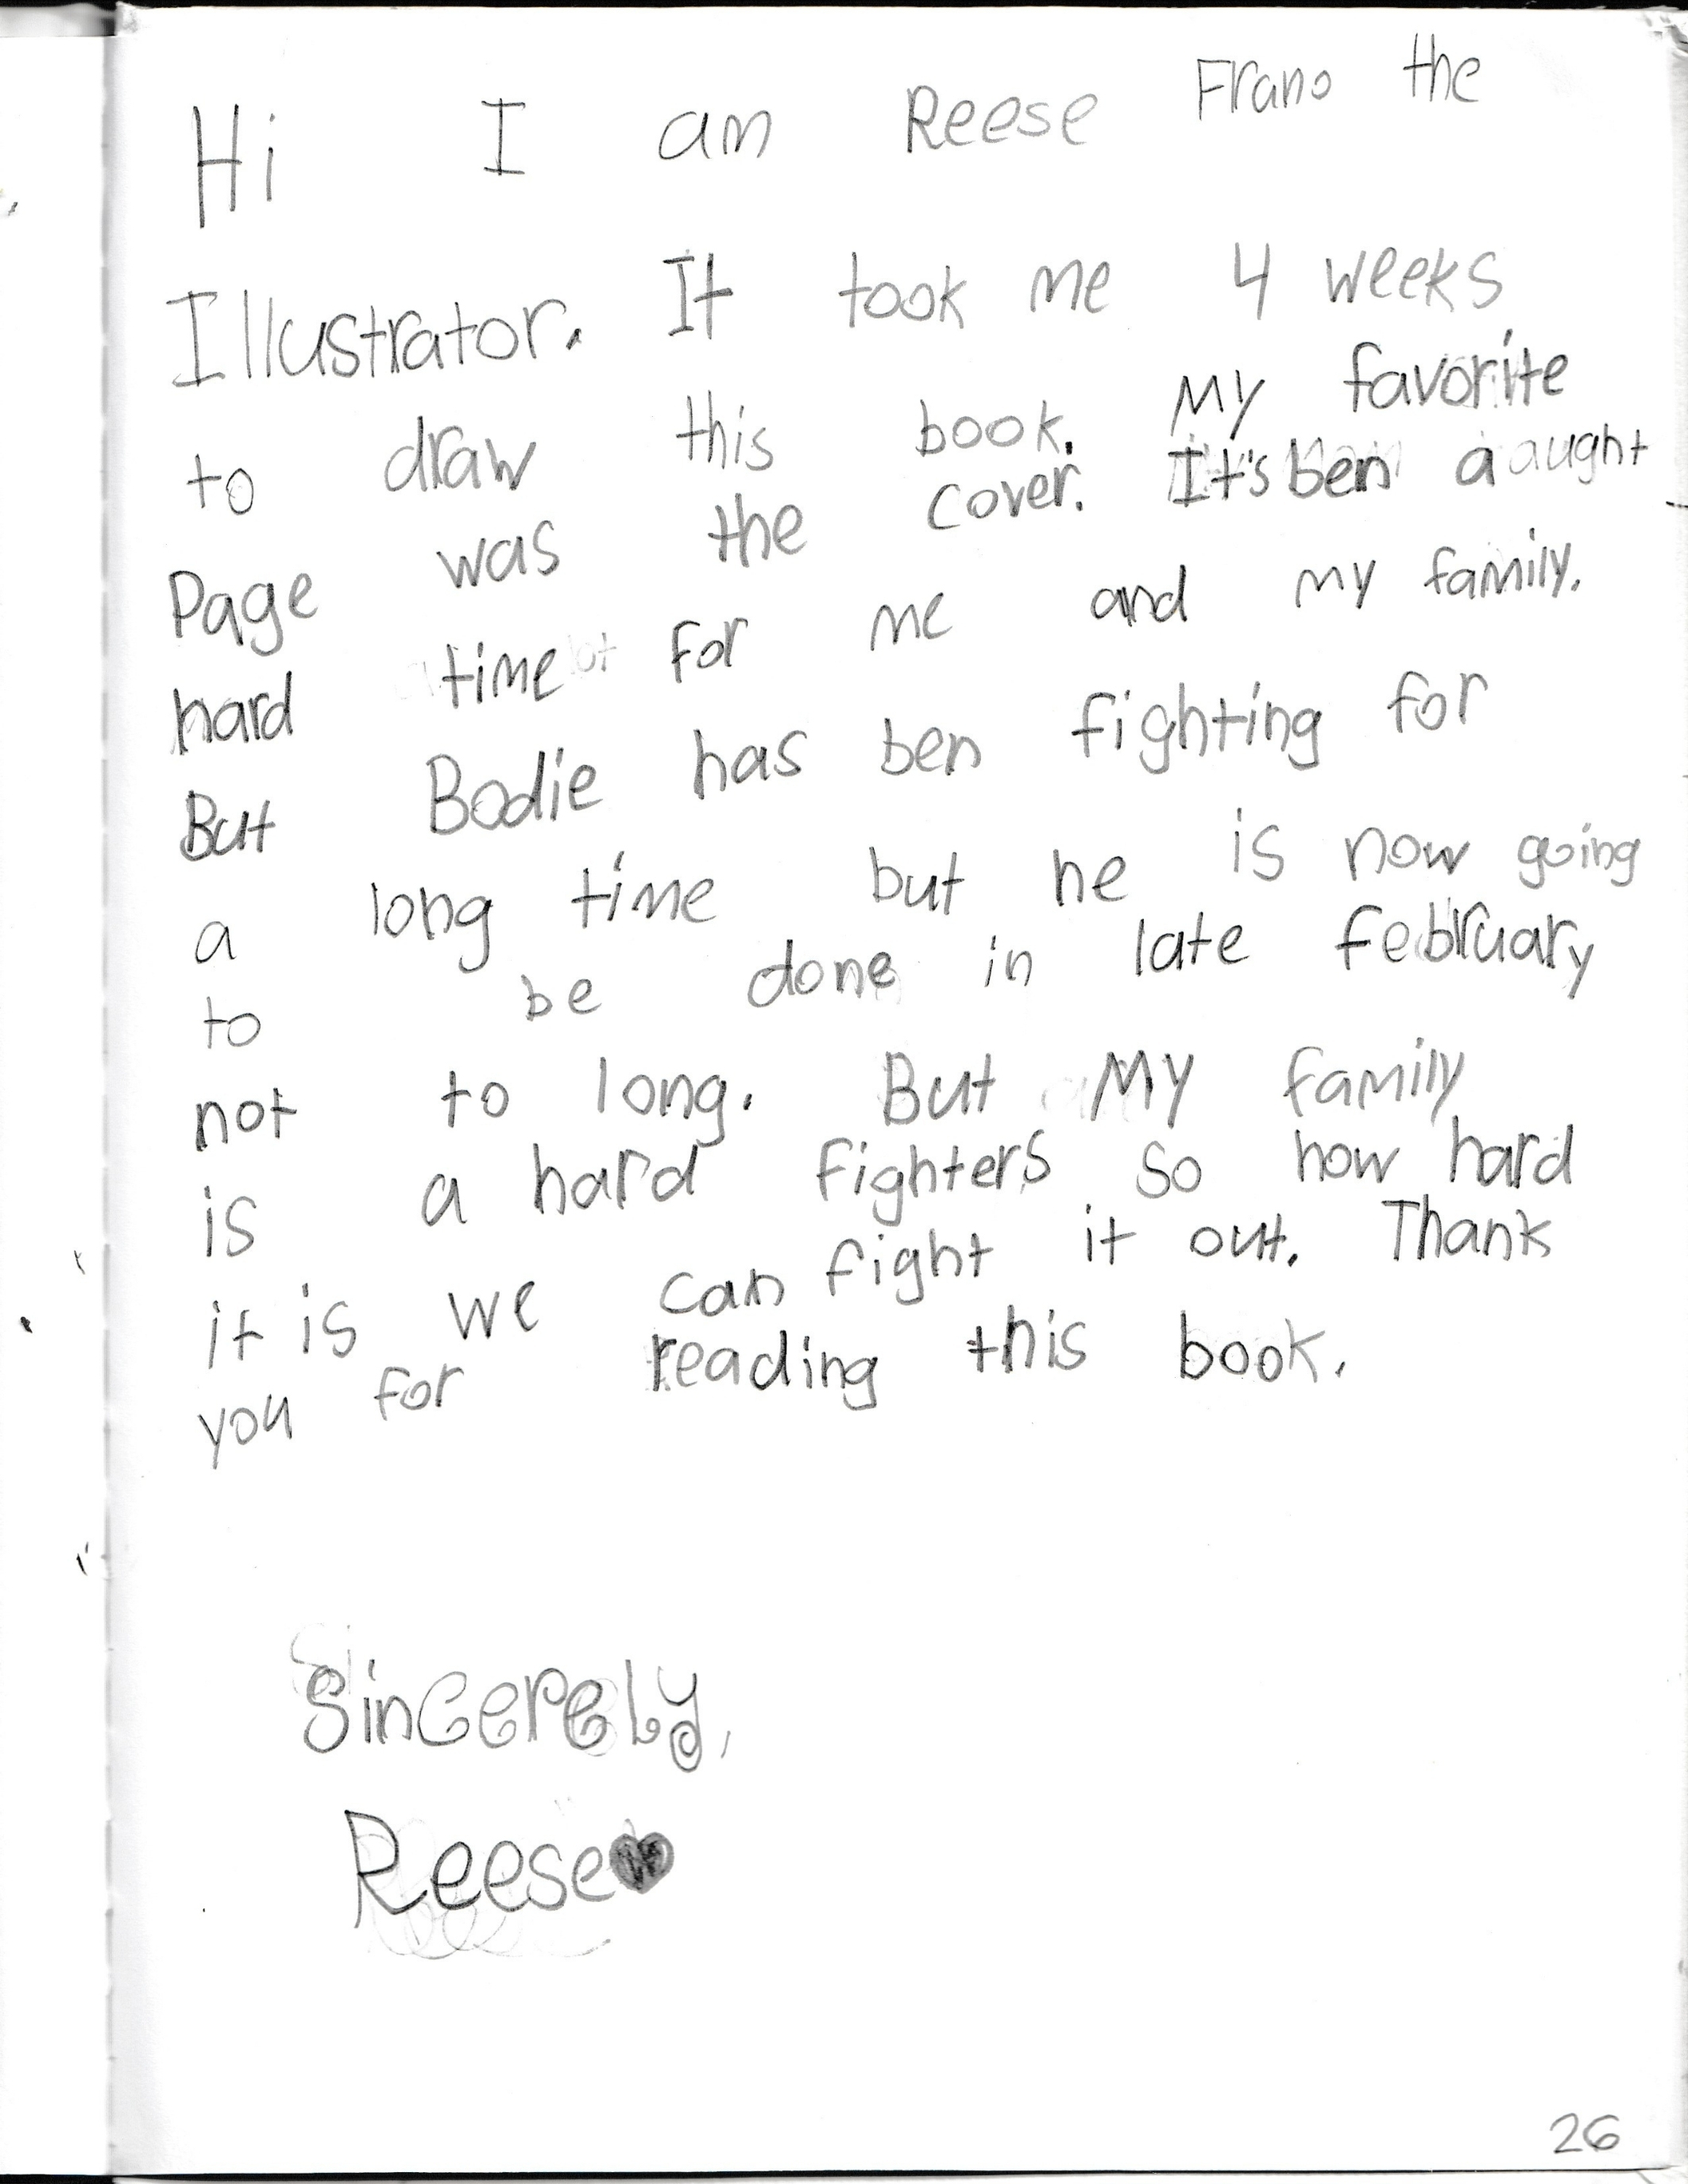 Hi I am Reese Frano the
Illustrator. It took me 4 weeks
to draw this book. My favorite
Page was the cover. It's ben a aught
hard time for me and my family.
But Bodie has ben fighting for
a long time but he is now going
to be done in late february
not to long. But My family
is a hard fighters so how hard
it is we can fight it out. Thank
you for reading this book.
Sincerely,
Reese♥
26